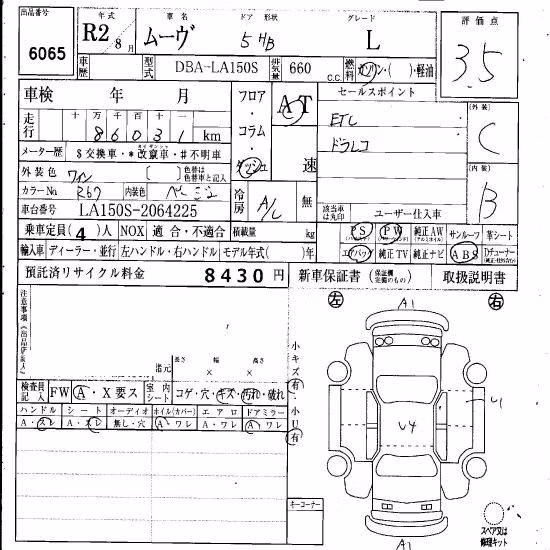 出品番号 年式 車名 ドア 形状 グレード 評価点
6065 R2 8月 ムーヴ 5 HB L 3.5
車歴 型式 DBA-LA150S 排気量 660 c.c. 燃料 ガソリン・( )・軽油
車検 年 月 フロア・コラム・ダッシュ AT 速 セールスポイント 外装 C
走行 十万千百十一 86031 km ETC
メーター歴 $交換車・*改竄車・#不明車 ドラレコ
外装色 ワイン [ ] 色替は色替車と記入 内装 B
カラーNo R67 内装色 ベージュ 冷房 A/C 無
車台番号 LA150S-2064225 該当車は丸印 ユーザー仕入車
乗車定員(4)人 NOX 適合・不適合 積載量 kg PS PW 純正AW サンルーフ 革シート
輸入車 ディーラー・並行 左ハンドル・右ハンドル モデル年式( )年 エアバック 純正TV 純正ナビ ABS Dチューナー
預託済リサイクル料金 8430円 新車保証書 取扱説明書
注意事項 左 A1 右
諸元 長さ 幅 高さ × ×
小キズ有
検査員記入 FW A・X要ス 室内シート コゲ・穴・キズ・汚れ・破れ
ハンドル シート オーディオ ホイル(カバー) エアロ ドアミラー 小U有
A・スレ A・スレ 無し・穴 A・ワレ A・ワレ A・ワレ
U4 U1
キーコーナー
スペア又は修理キット
A1